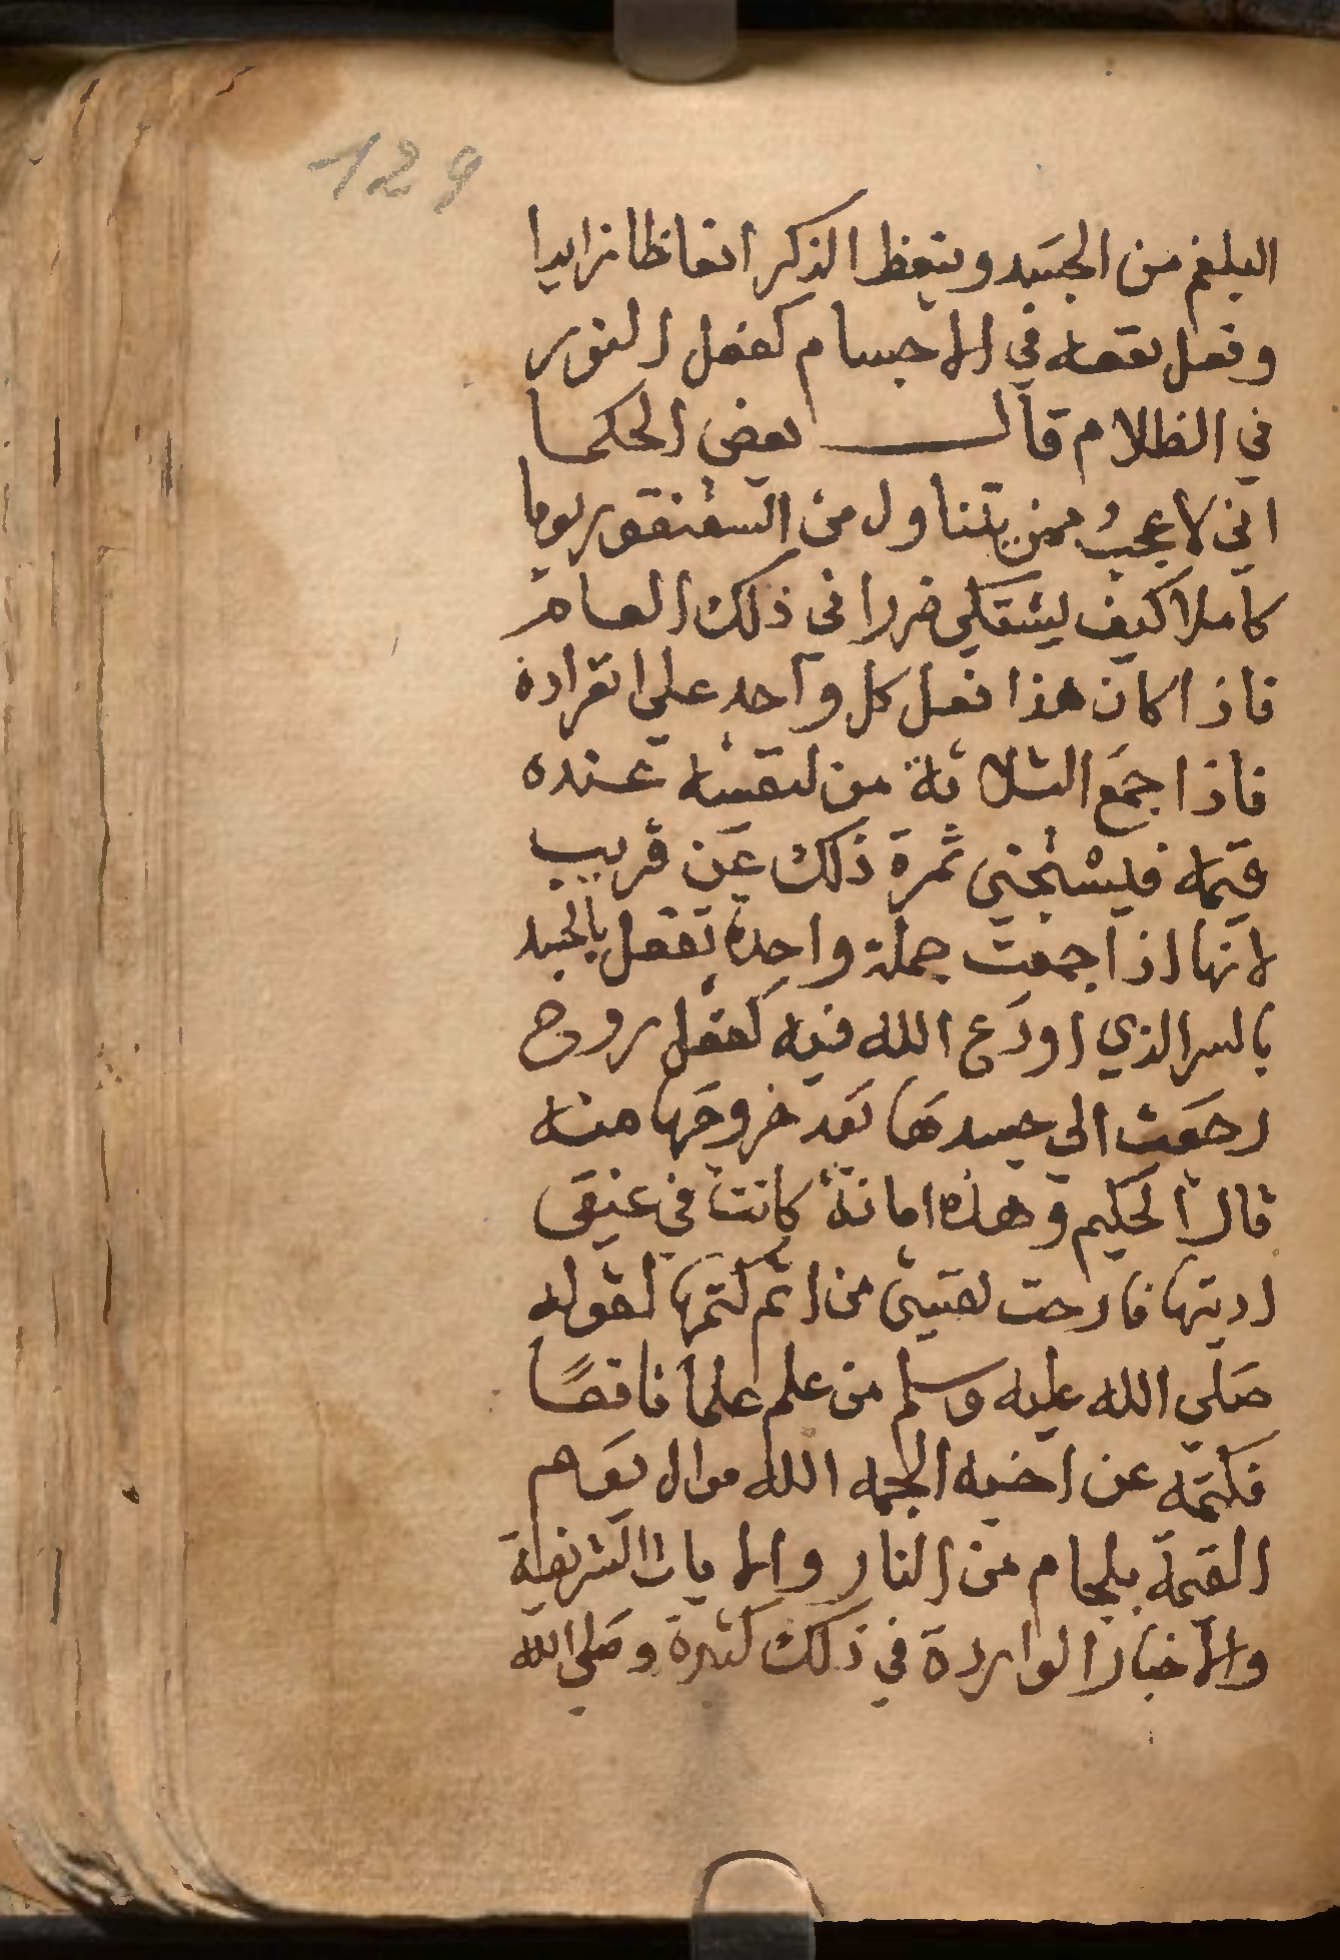 129
البلغم من الجسد وينعظ الذكر انعاظا زايدا
وفعل نفعه في الاجسام كفعل النور
في الظلام قال بعض الحكما
اني لاعجب ممن يتناول من السقنقور يوما
كاملا كيف يشتكي ضررا في ذلك العام
فاذا كان هذا فعل كل واحد على انفراده
فاذا جمع الثلاثة من لنفسه عنده
قيمه فيستجني ثمرة ذلك عن قريب
لانها اذا جمعت جملة واحدة تفعل بالجسد
بالسر الذي اودع الله فيه كفعل روح
رجعت الي جسدها بعد خروجها منه
قال الحكيم وهذه امانة كانت في عنقي
اديتها فارحت نفسي من اثم كتمها لقوله
صلي الله عليه وسلم من علم علما نافعًا
فكتمه عن اخيه الجمه الله يوم
القيمة بلجام من النار والايات الشريفة
والاخبار الواردة في ذلك كثيرة وصلي الله